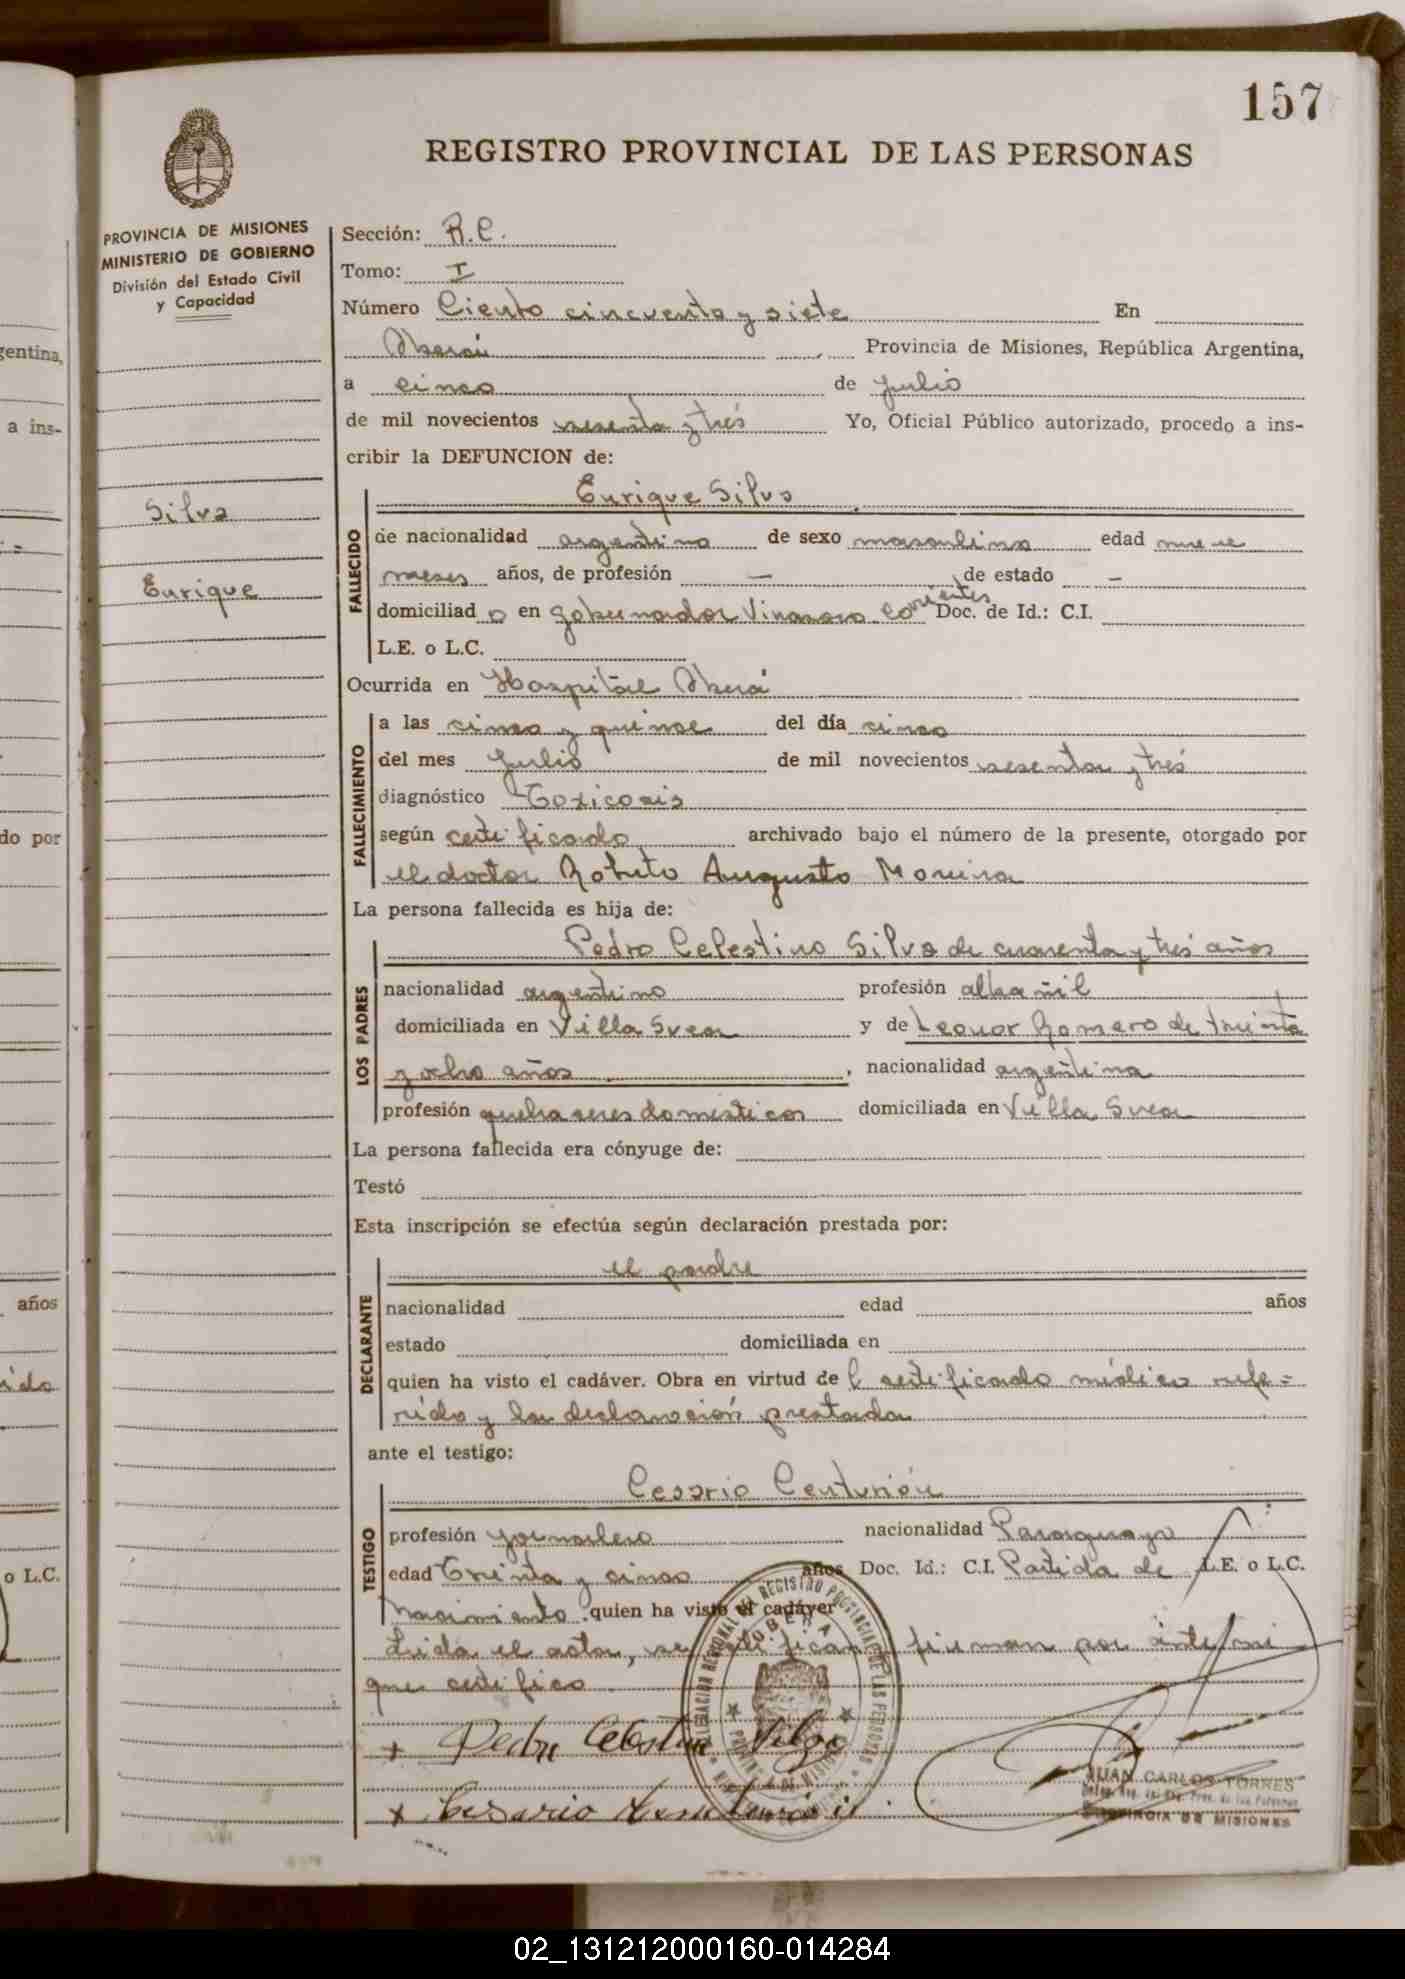 157
REGISTRO PROVINCIAL DE LAS PERSONAS
PROVINCIA DE MISIONES
MINISTERIO DE GOBIERNO
División del Estado Civil
y Capacidad
Silva
Enrique
Sección: R.C.
Tomo: I
Número Ciento cincuenta y siete En
Oberá Provincia de Misiones, República Argentina,
a cinco de julio
de mil novecientos sesenta y trés Yo, Oficial Público autorizado, procedo a ins-
cribir la DEFUNCION de:
Enrique Silva
FALLECIDO
de nacionalidad argentina de sexo masculino edad nueve
meses años, de profesión — de estado —
domiciliad o en gobernador Virasoro Corrientes Doc. de Id.: C.I.
L.E. o L.C.
Ocurrida en Hospital Oberá
FALLECIMIENTO
a las cinco y quince del día cinco
del mes julio de mil novecientos sesenta y trés
diagnóstico Toxicosis
según certificado archivado bajo el número de la presente, otorgado por
el doctor Roberto Augusto Moreira
La persona fallecida es hija de:
LOS PADRES
Pedro Celestino Silva de cuarenta y trés años
nacionalidad argentino profesión albañil
domiciliada en Villa Svea y de Leonor Romero de treinta
y ocho años, nacionalidad argentina
profesión quehaceres domésticos domiciliada en Villa Svea
La persona fallecida era cónyuge de:
Testó
Esta inscripción se efectúa según declaración prestada por:
DECLARANTE
el padre
nacionalidad edad años
estado domiciliada en
quien ha visto el cadáver. Obra en virtud de l certificado médico refe=
rido y la declaración prestada
ante el testigo:
TESTIGO
Cesario Centurión
profesión jornalero nacionalidad Paraguaya
edad Treinta y cinco años Doc. Id.: C.I. Partida de L.E. o L.C.
Nacimiento quien ha visto el cadáver
Leída el acta, se ratifican y firman por ante mi
que certifico
+ Pedro Celestino Silva
+ Cesario Centurión
DELEGACION REGIONAL DEL REGISTRO PROVINCIAL DE LAS PERSONAS
OBERA
PROVINCIA DE MISIONES
JUAN CARLOS TORRES
PROVINCIA DE MISIONES
gentina,
a ins-
do por
años
rido
o L.C.
02_131212000160-014284